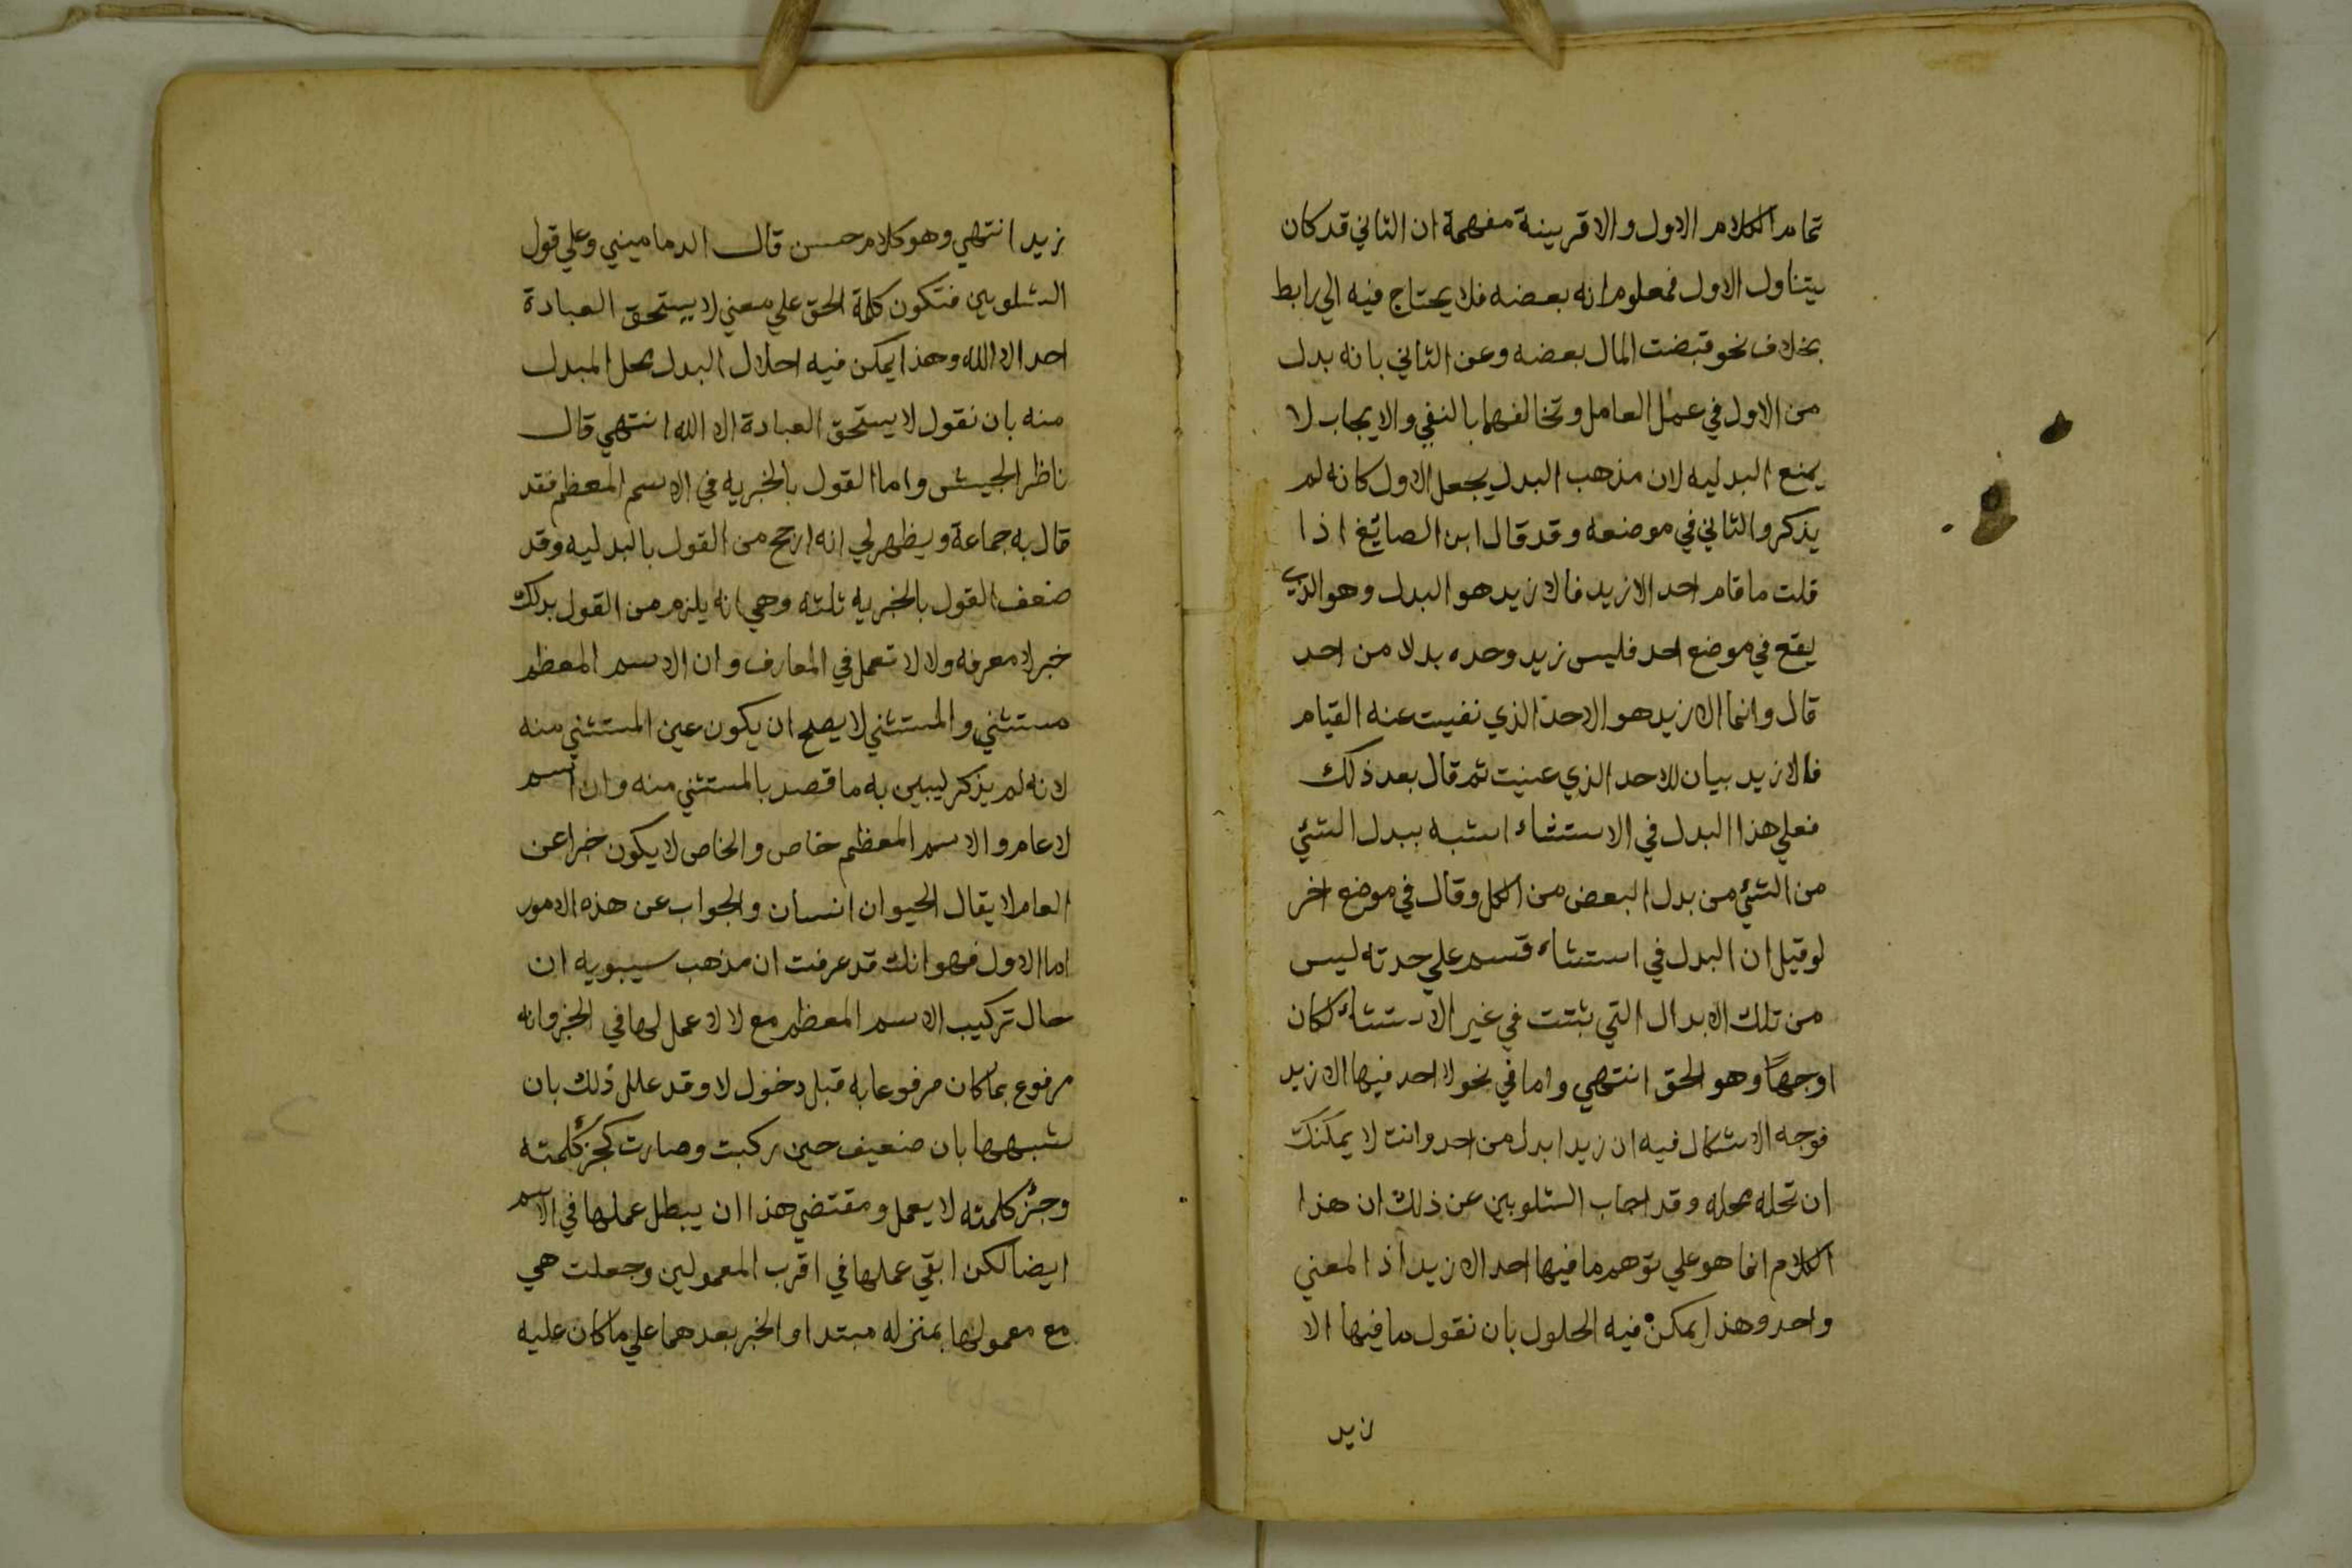 تمام الكلام الاول والا قرينة مفهمة ان الثاني قد كان
يتناول الاول فمعلوم انه بعضه فلا يحتاج فيه الي رابط
بخلاف نحو قبضت المال بعضه وعن الثاني بانه بدل
من الاول في عمل العامل وتخالفهما بالنفي والايجاب لا
يمنع البدليه لان مذهب البدل يجعل الاول كانه لم
يذكر والثاني في موضعه وقد قال ابن الصايغ اذا
قلت ما قام احد الا زيد فالا زيد هو البدل وهو الذي
يقع في موضع احد فليس زيد وحده بدلا من احد
قال وانما الا زيد هو الاحد الذي نفيت عنه القيام
فالا زيد بيان للاحد الذي عنيت ثم قال بعد ذلك
فعلي هذا البدل في الاستثناء اشبه ببدل الشئي
من الشئي من بدل البعض من الكل وقال في موضع اخر
لو قيل ان البدل في استثناء قسم علي حدته ليس
من تلك الابدال التي ثبتت في غير الاستثناء لكان
اوجها وهو الحق انتهي واما في نحو لا احد فيها الا زيد
فوجه الاشكال فيه ان زيدا بدل من احد وانت لا يمكنك
ان تحله محله وقد اجاب الشلوبين عن ذلك ان هذا
الكلام انما هو علي توهم ما فيها احد الا زيد اذ المعني
واحد وهذا يمكن فيه الحلول بان نقول ما فيها الا
زيد
زيد انتهي وهو كلام حسن قال الدماميني وعلي قول
الشلوبين فتكون كلمة الحق علي معني لا يستحق العبادة
احد الا الله وهذا يمكن فيه احلال البدل محل المبدل
منه بان نقول لا يستحق العبادة الا الله انتهي قال
ناظر الجيش واما القول بالخبريه في الاسم المعظم فقد
قال به جماعة ويظهر لي انه ارجح من القول بالبدليه وقد
ضعف القول بالخبريه ثلثه وهي انه يلزم من القول بدلك
خبر لا معرفه ولا لا تعمل في المعارف وان الاسم المعظم
مستثني والمستثني لا يصح ان يكون عين المستثني منه
لانه لم يذكر ليبين به ما قصد بالمستثني منه وان اسم
لا عام والاسم المعظم خاص والخاص لا يكون خبرا عن
العام لا يقال الحيوان انسان والجواب عن هذه الامور
اما الاول فهو انك قد عرفت ان مذهب سيبويه ان
حال تركيب الاسم المعظم مع لا لا عمل لها في الخبر وانه
مرفوع بما كان مرفوعا به قبل دخول لا وقد علل ذلك بان
شبهها بان ضعيف حين ركبت وصارت كجزء كلمته
وجزء كلمته لا يعمل ومقتضي هذا ان يبطل عملها في الاسم
ايضا لكن ابقي عملها في اقرب المعمولين وجعلت هي
مع معمولها بمنزله مبتدا والخبر بعدهما علي ما كان عليه